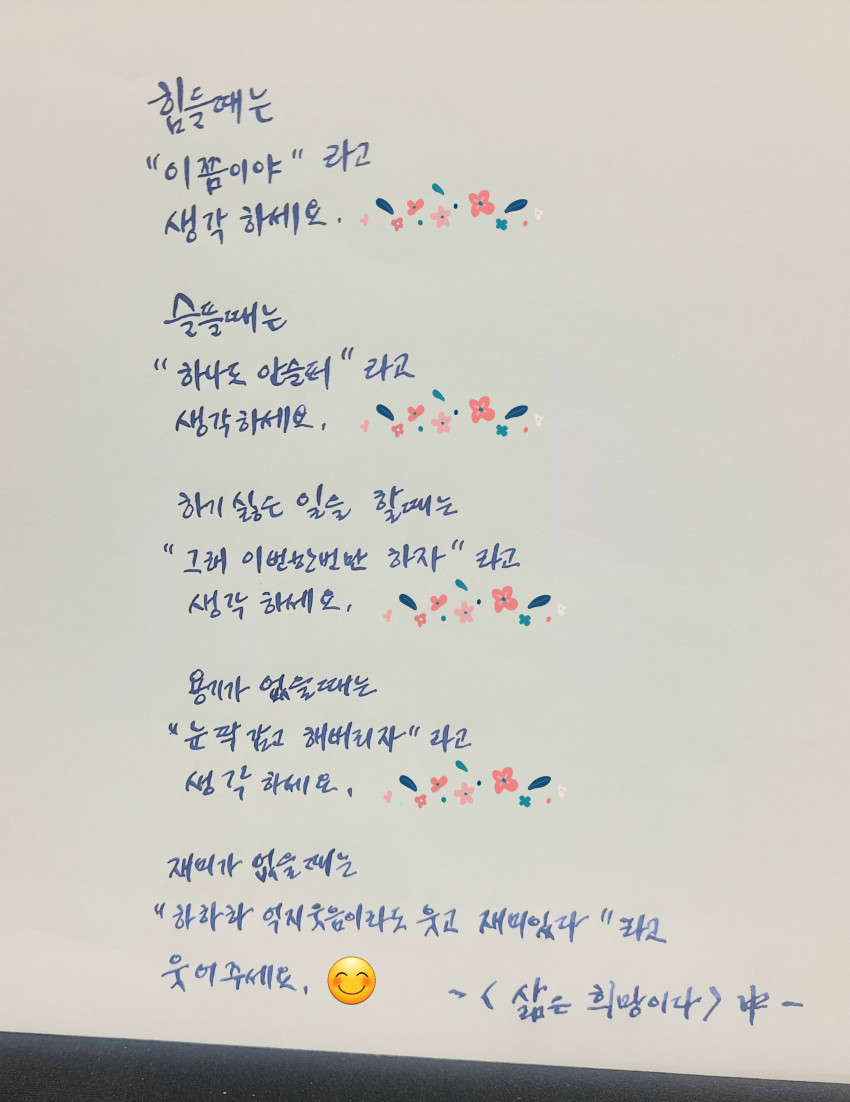 힘들때는
"이쯤이야" 라고
생각 하세요.
슬플때는
"하나도 안슬퍼" 라고
생각하세요.
하기 싫은 일을 할때는
"그래 이번한번만 하자" 라고
생각 하세요.
용기가 없을때는
"눈 딱 감고 해버리자" 라고
생각 하세요.
재미가 없을때는
"하하하 억지웃음이라도 웃고 재미있다" 라고
웃어주세요.
~<삶은 희망이다> 中 -